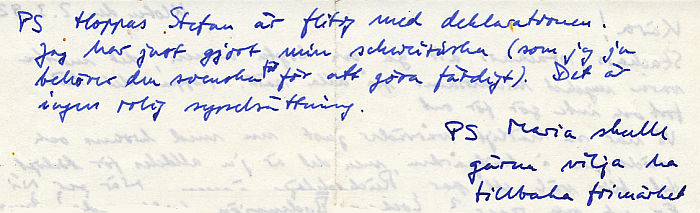 PS Hoppas Stefan är flitig med deklarationen!
Jag har just gjort min schweiziska (som jag ju
behöver den svenska för att göra färdigt). Det är
ingen rolig sysselsättning.
PS Maria skulle
gärna vilja ha
tillbaka frimärket